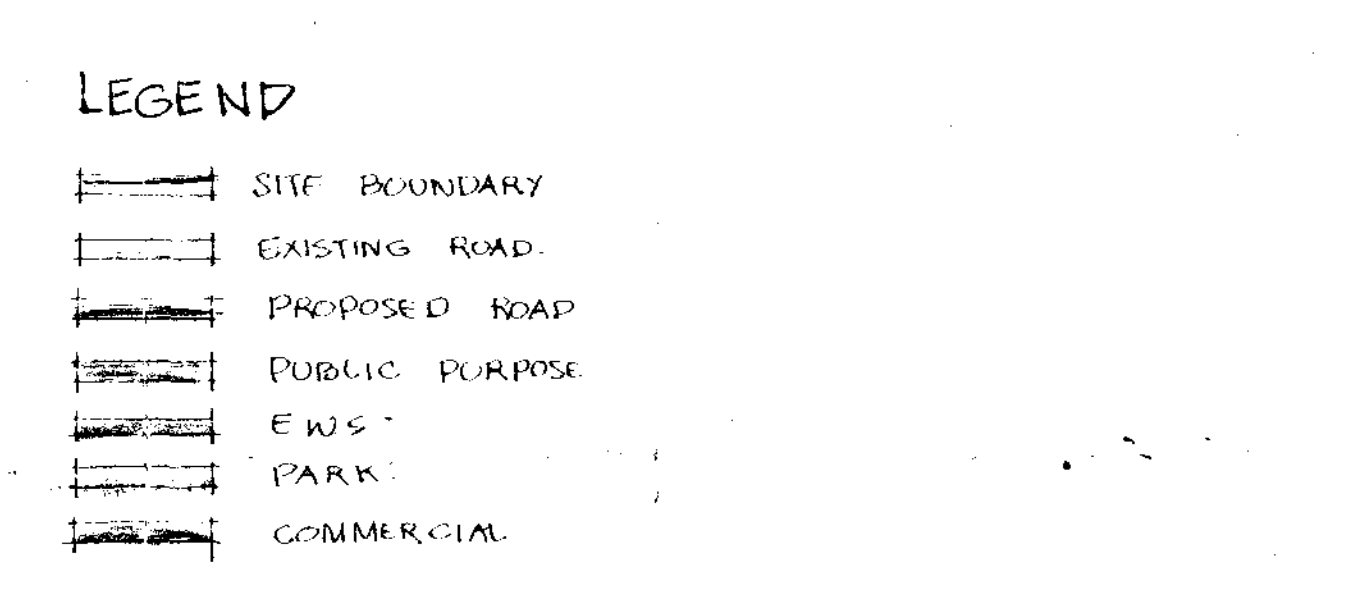 LEGEND
SITE BOUNDARY
EXISTING ROAD.
PROPOSED ROAD
PUBLIC PURPOSE
EWS
PARK
COMMERCIAL